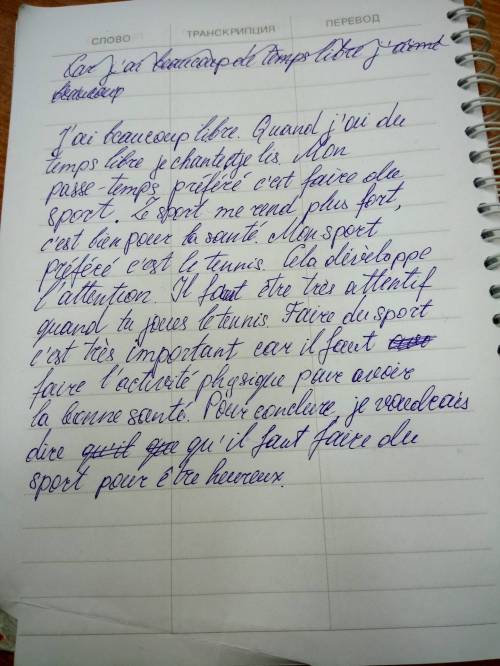 СЛОВО ТРАНСКРИПЦИЯ ПЕРЕВОД
Car j'ai beaucoup de temps libre j'aime
beaucoup
J'ai beaucoup libre. Quand j'ai du
temps libre je chante et je lis. Mon
passe-temps préféré c'est faire du
sport. Le sport me rend plus fort,
c'est bien pour la santé. Mon sport
préféré c'est le tennis. Cela développe
l'attention. Il faut être très attentif
quand tu joues le tennis. Faire du sport
c'est très important car il faut
faire l'activité physique pour avoir
la bonne santé. Pour conclure, je voudrais
dire qu'il que qu'il faut faire du
sport pour être heureux.